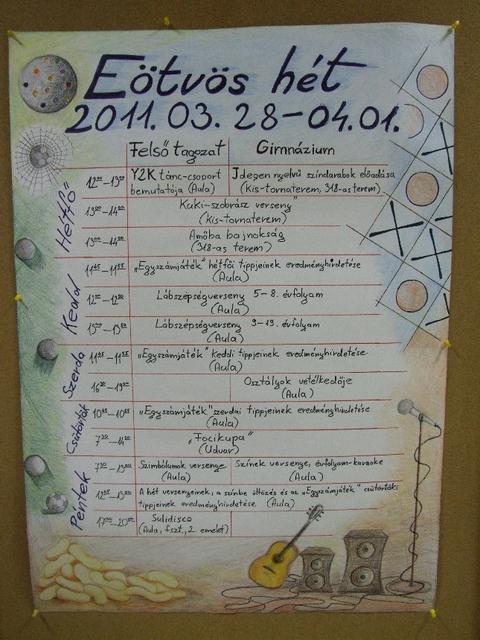 Eötvös hét
2011.03.28-04.01.
Felső tagozat
Gimnázium
Hétfő
Y2K tánc-csoport
bemutatója (Aula)
Idegen nyelvű színdarabok előadása
(kis-tornaterem, 318-as terem)
Kuki-szobrász verseny
(kis-tornaterem)
Amőba bajnokság
(318-as terem)
Kedd
„Egyszámjáték" hétfői tippjeinek eredményhirdetése
(Aula)
Lábszépségverseny 5-8. évfolyam
(Aula)
Lábszépségverseny 9-13. évfolyam
(Aula)
Szerda
„Egyszámjáték" keddi tippjeinek eredményhirdetése
(Aula)
Osztályok vetélkedője
(Aula)
Csütörtök
„Egyszámjáték" szerdai tippjeinek eredményhirdetése
(Aula)
„Focikupa"
(Udvar)
Péntek
Szimbólumok versenye
(Aula)
Színek versenye, évfolyam-karaoke
(Aula)
A hét versenyeinek, a színbe öltözés és az „Egyszámjáték" csütörtöki
tippjeinek eredményhirdetése (Aula)
Sulidisco
(Aula, fszt., 2. emelet)